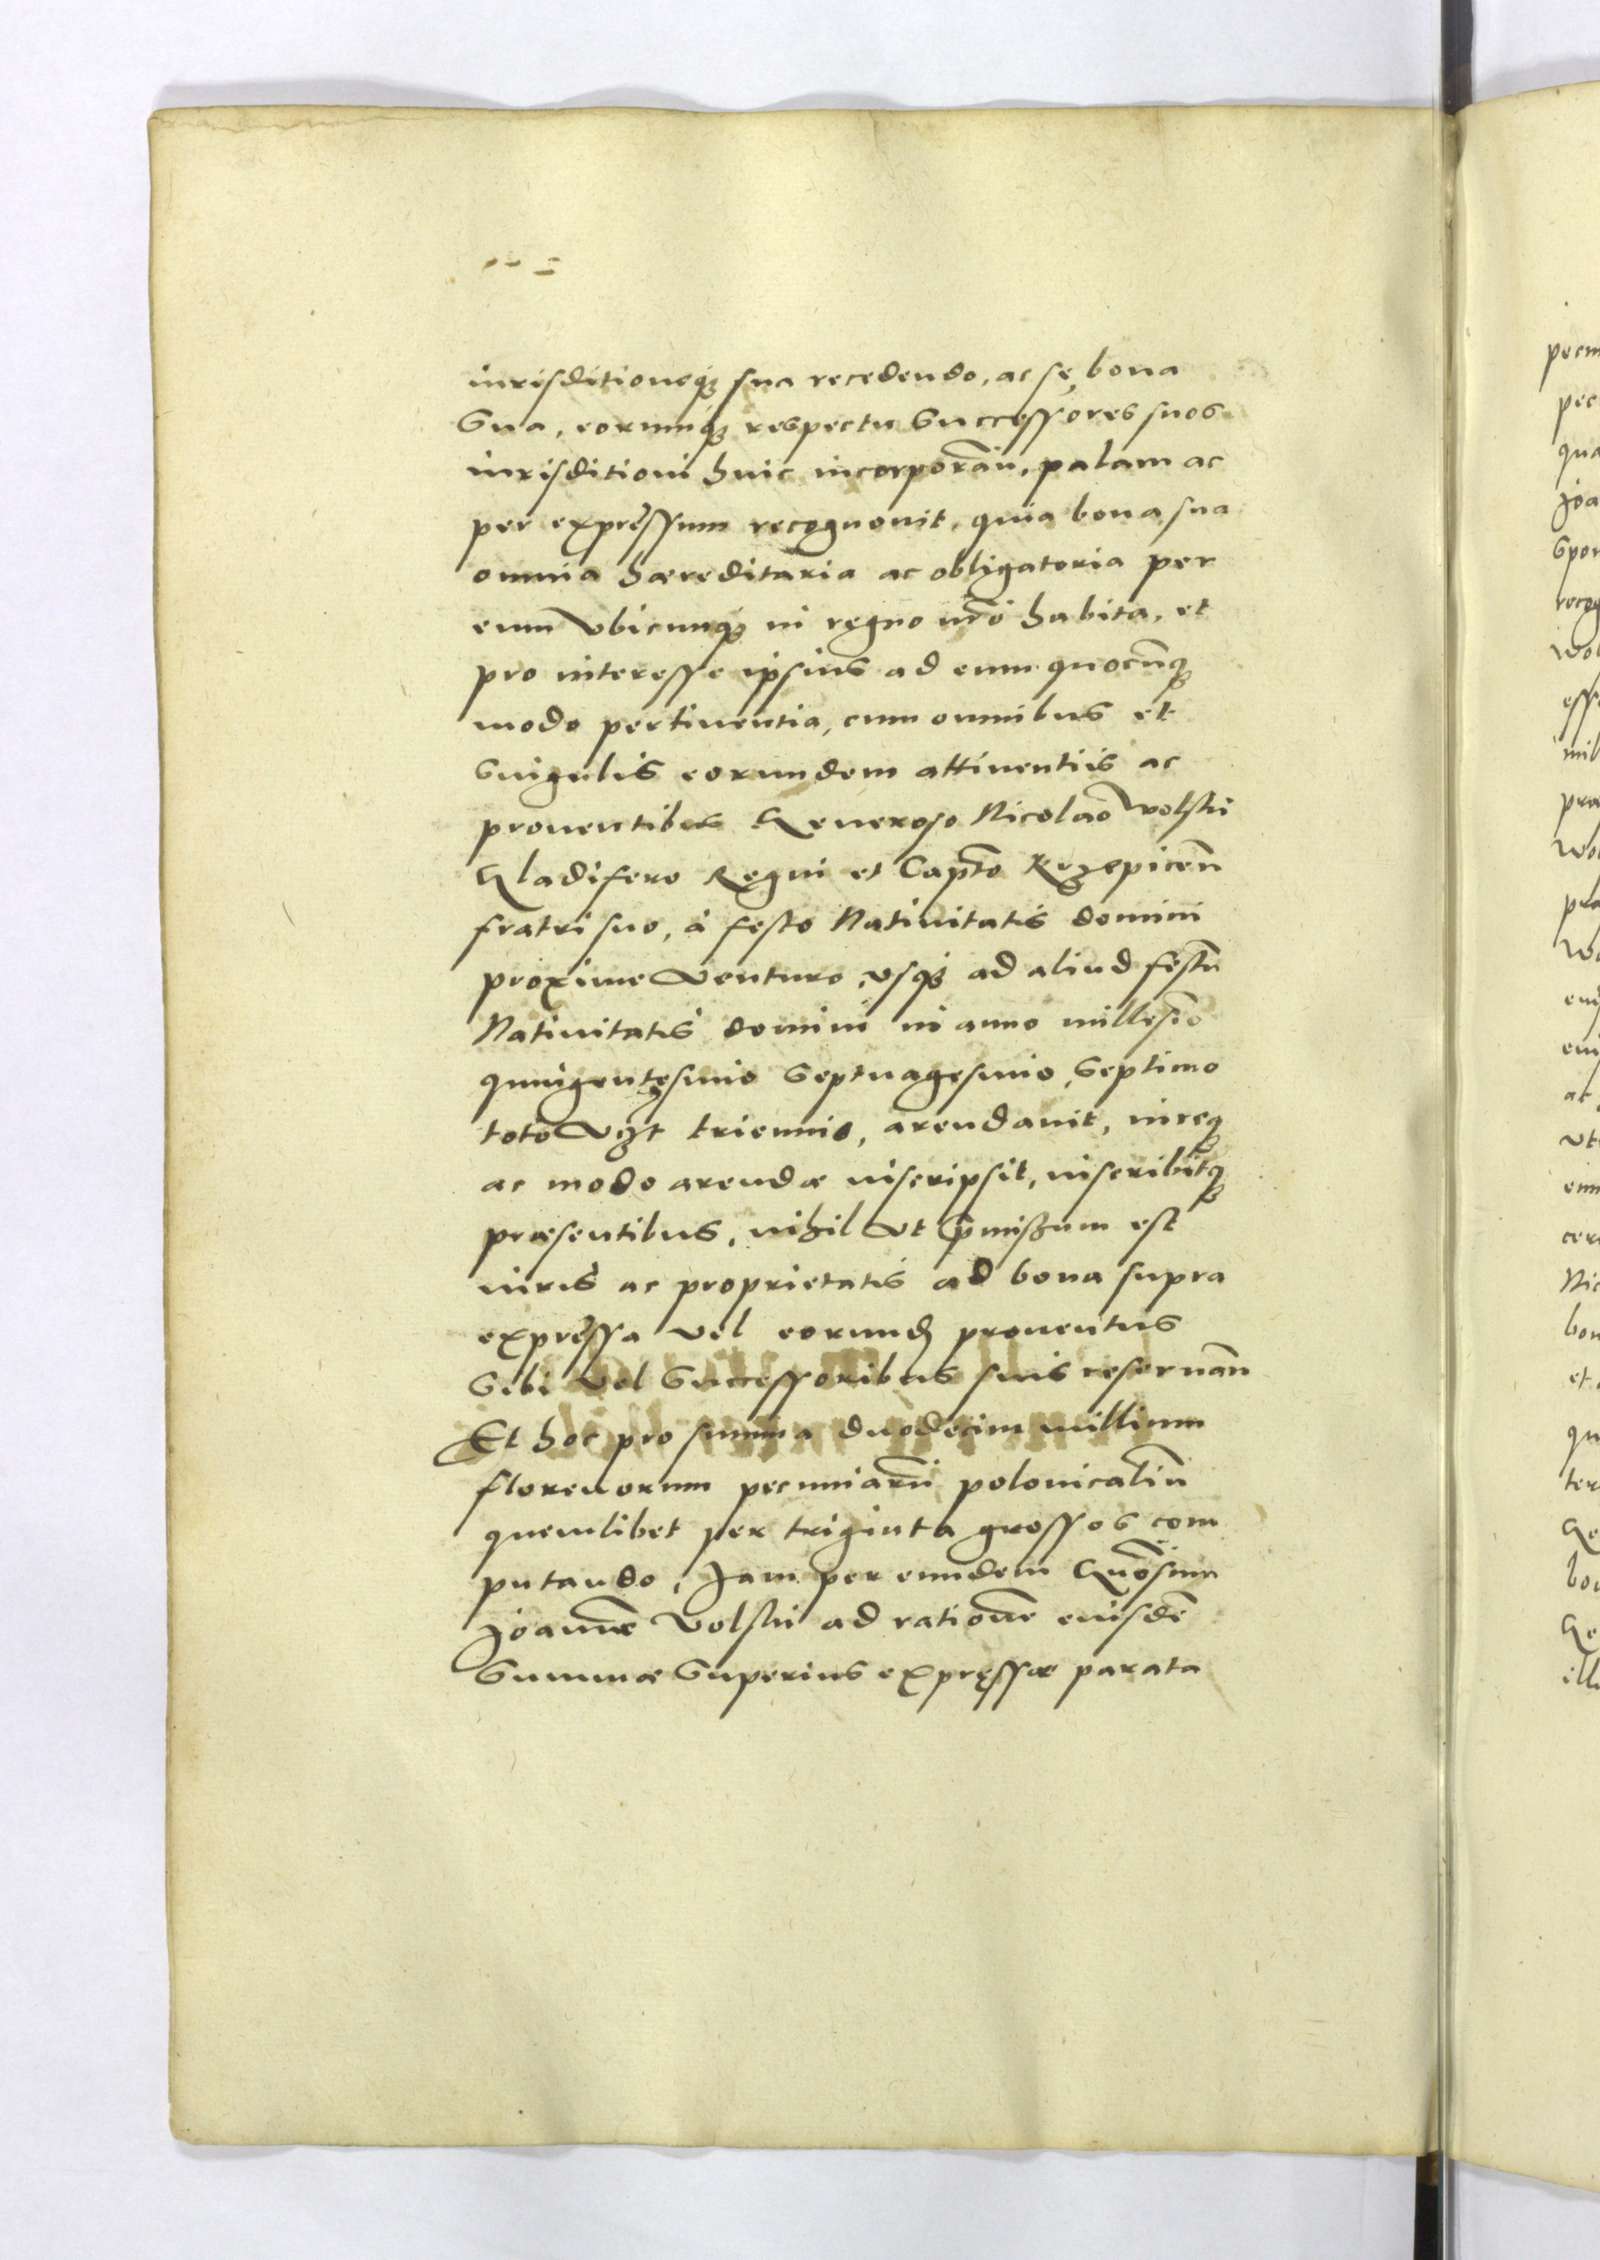 iurisditioneq₃ sua recedendo, ac se, bona
Sua, eorumq₃ respectu Successores suos
iurisditioni huic incorporan̄, palam ac
per expressum recognouit, quia bona sua
omnia hæreditaria ac obligatoria per
eum vbicunq₃ in regno nr̄o habita, et
pro interesse ipsius ad eum quocūq₃
modo pertinentia, cum omnibus et
Singulis eorundem attinentiis ac
prouentibus Generoso Nicolao Wolski
Gladifero Regni et Capt̄o Krzepicen̄
fratri suo, à festo Natiuitatis domini
proxime Venturo, vsq₃ ad aliud festū
Natiuitatis domini in anno millesīo
quingentesimo Septuagesimo Septimo
toto vz̄t triennio, arendauit, inreq₃
ac modo arendæ inscripsit, inscribitq₃
præsentibus, nihil vt p̄miszum est
iuris ac proprietatis ad bona supra
expressa vel eorund̄ prouentus
Sibi vel Successoribus suis reseruan̄
Et hoc pro summa duodecim millium
florenorum pecuniarū polonicaliū
quemlibet per triginta grossos com
putando, Jam per eundem Gn̄osum
Joannē Volski ad rationē euisdē
Summæ Superius expressæ parata